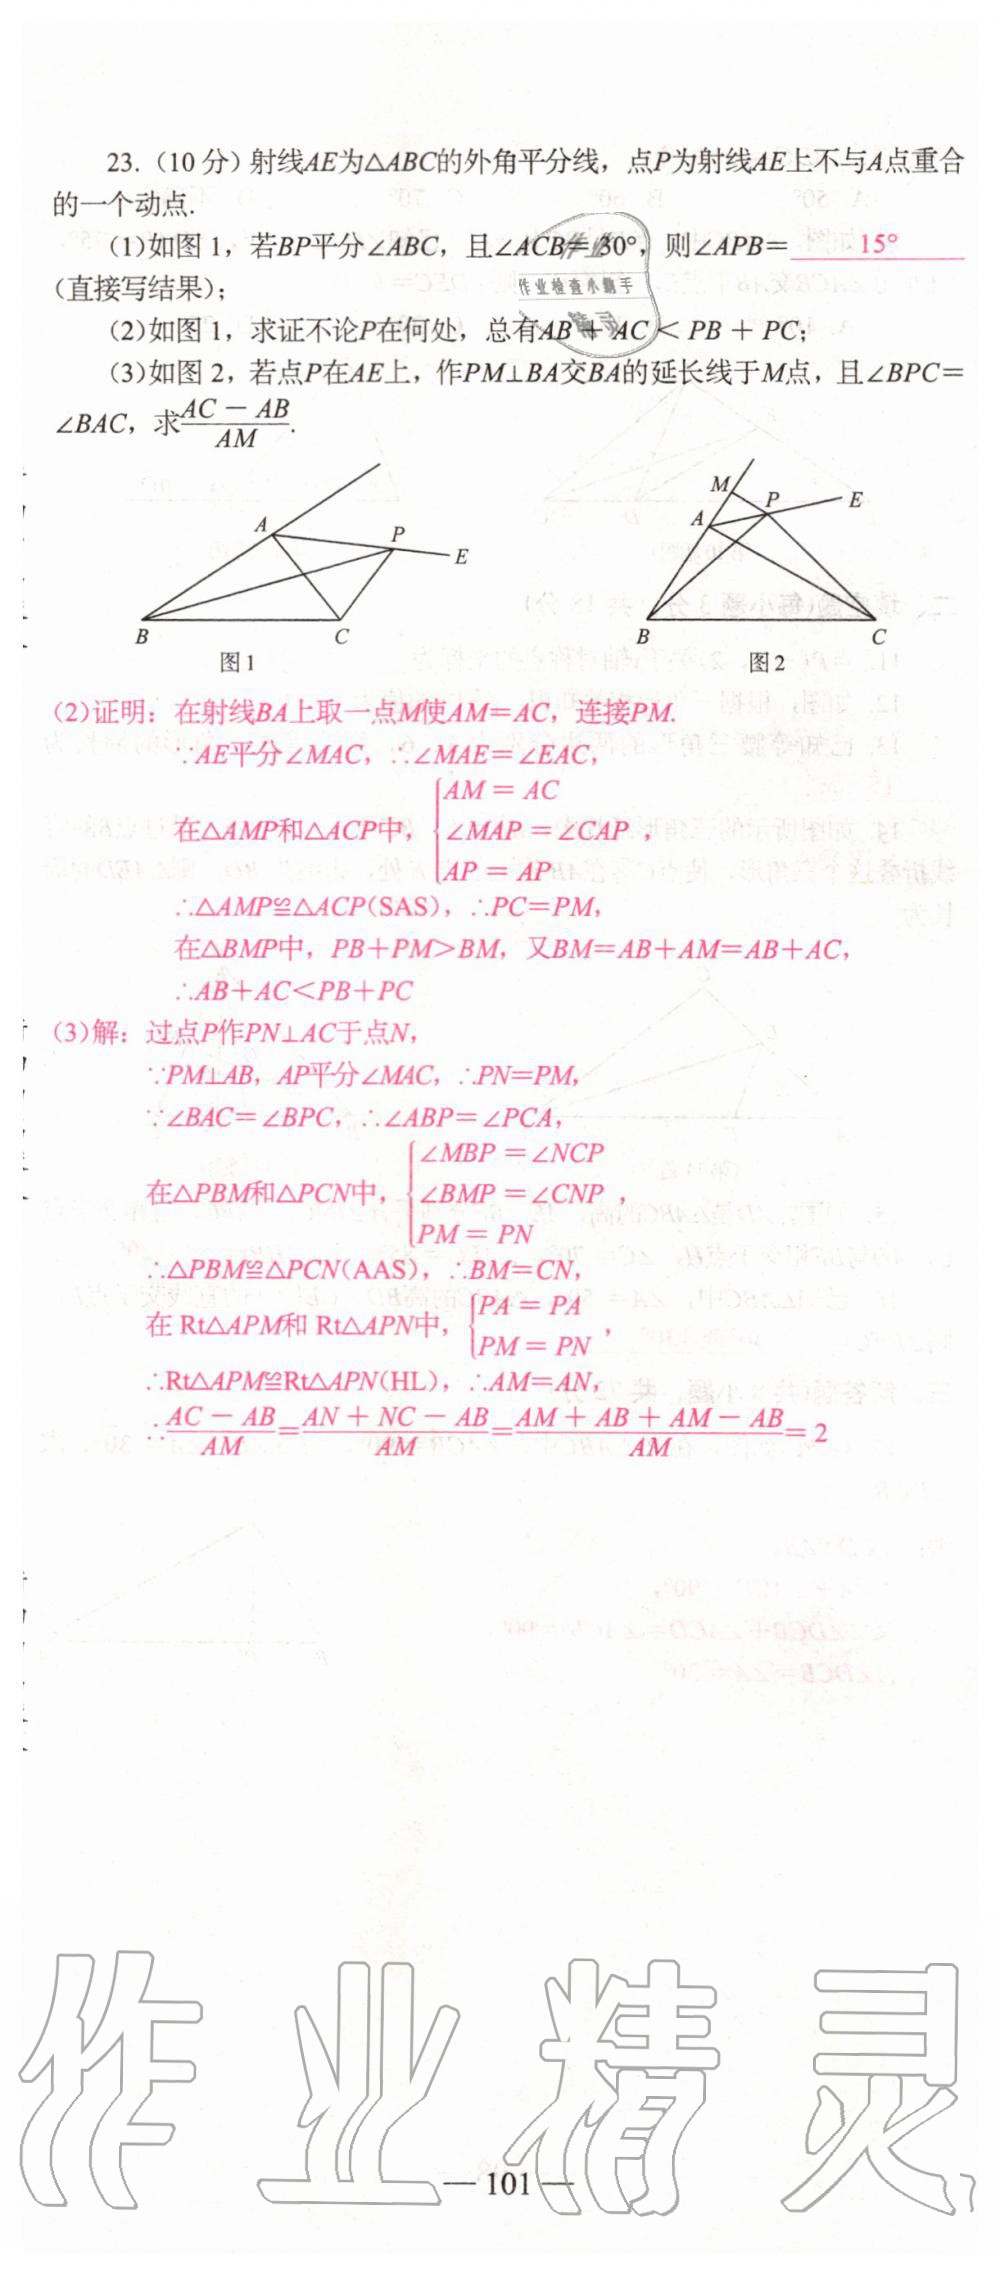 23.（10 分）射线AE为△ABC的外角平分线，点P为射线AE上不与A点重合
的一个动点.
(1)如图 1，若BP平分∠ABC，且∠ACB=30°，则∠APB= 15°
(直接写结果)；
(2)如图 1，求证不论P在何处，总有AB + AC < PB + PC；
(3)如图 2，若点P在AE上，作PM⊥BA交BA的延长线于M点，且∠BPC=
∠BAC，求(AC − AB)/AM.
作业检查小助手
A
P
E
B
C
图1
M
P
E
A
B
C
图2
(2)证明：在射线BA上取一点M使AM=AC，连接PM.
∵AE平分∠MAC，∴∠MAE=∠EAC，
在△AMP和△ACP中，{AM = AC
∠MAP = ∠CAP，
AP = AP
∴△AMP≌△ACP(SAS)，∴PC=PM，
在△BMP中，PB+PM>BM，又BM=AB+AM=AB+AC，
∴AB+AC<PB+PC
(3)解：过点P作PN⊥AC于点N，
∵PM⊥AB，AP平分∠MAC，∴PN=PM，
∵∠BAC=∠BPC，∴∠ABP=∠PCA，
在△PBM和△PCN中，{∠MBP = ∠NCP
∠BMP = ∠CNP，
PM = PN
∴△PBM≌△PCN(AAS)，∴BM=CN，
在 Rt△APM和 Rt△APN中，{PA = PA
PM = PN，
∴Rt△APM≌Rt△APN(HL)，∴AM=AN，
∴(AC − AB)/AM=(AN + NC − AB)/AM=(AM + AB + AM − AB)/AM= 2
作业精灵
— 101 —